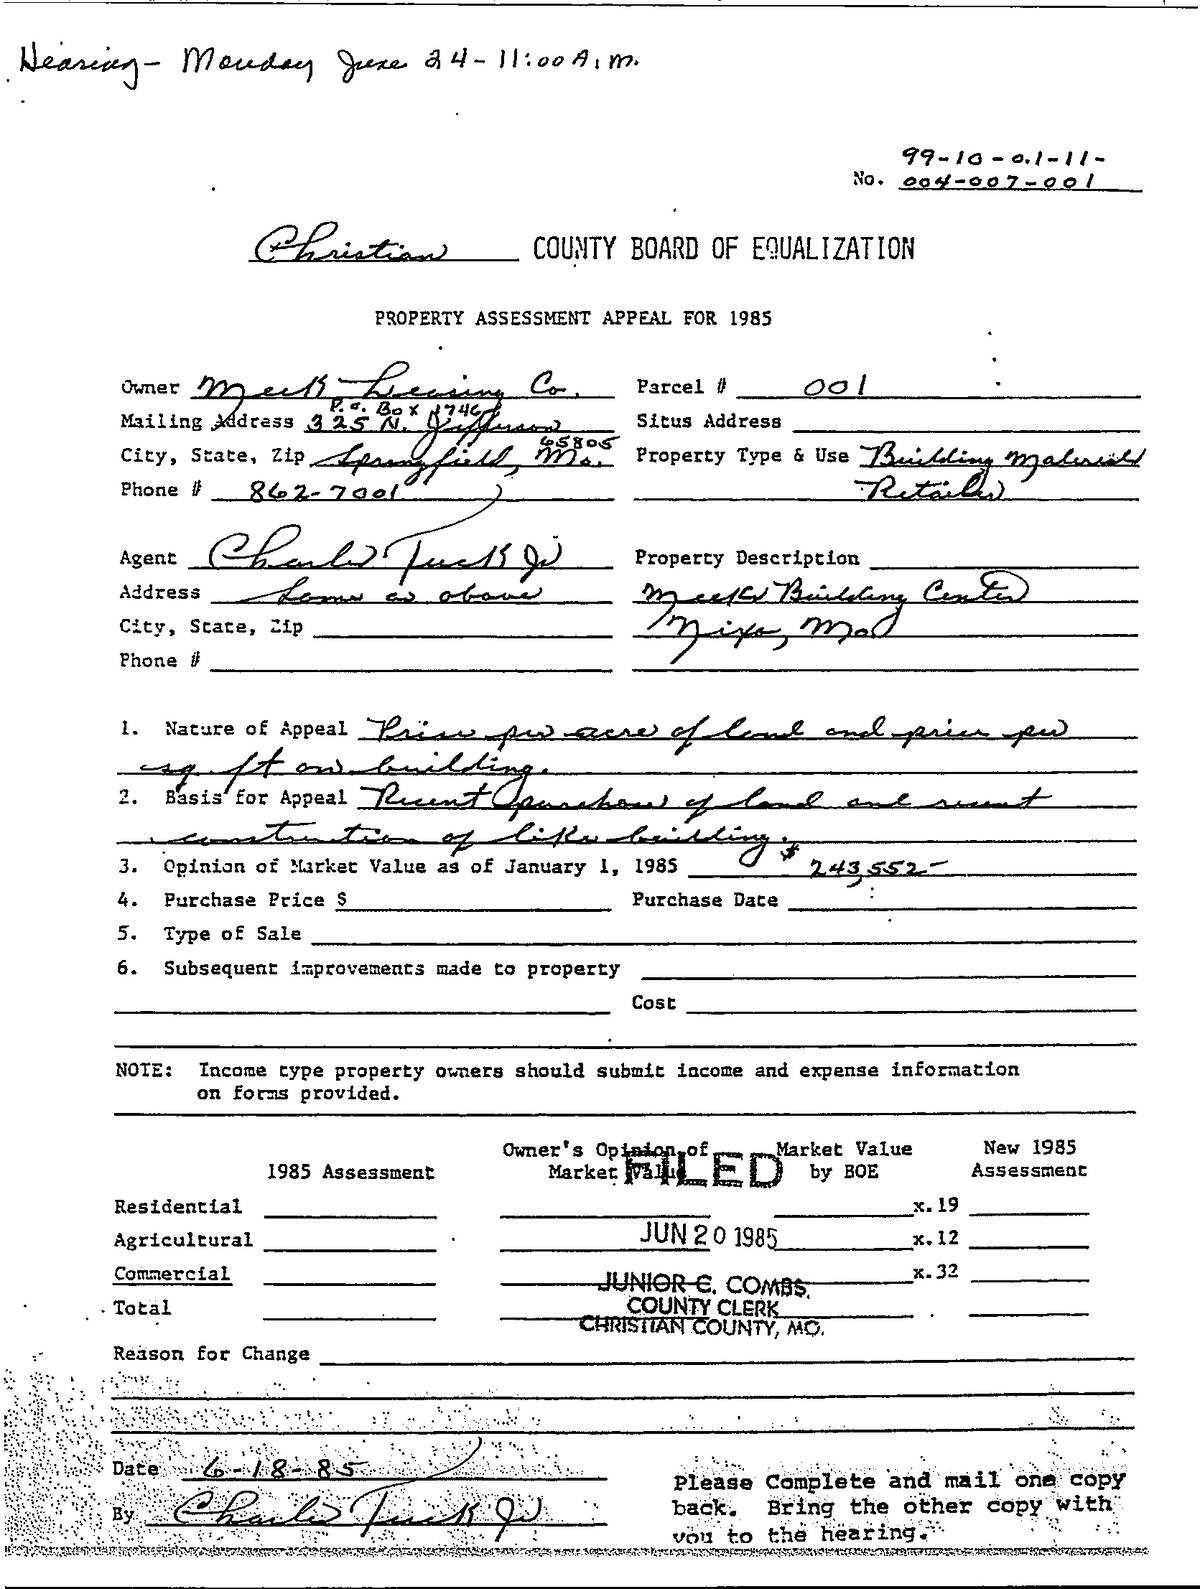 Hearing - Monday June 24 - 11:00 A.M.
99-10-0.1-11-
No. 004-007-001
Christian COUNTY BOARD OF EQUALIZATION
PROPERTY ASSESSMENT APPEAL FOR 1985
Owner Meek Leasing Co. Parcel # 001
P.O. Box 1746
Mailing Address 325 N. Jefferson Situs Address
65805
City, State, Zip Springfield, Mo. Property Type & Use Building Material
Phone # 862-7001 Retailer
Agent Charles Tuck Jr Property Description
Address Same as above Meeks Building Center
City, State, Zip Nixa, Mo
Phone #
1. Nature of Appeal Price per acre of land and price per
sq. ft on building.
2. Basis for Appeal Recent purchase of land and recent
construction of like building.
3. Opinion of Market Value as of January 1, 1985 $ 243,552-
4. Purchase Price $ Purchase Date
5. Type of Sale
6. Subsequent improvements made to property
Cost
NOTE: Income type property owners should submit income and expense information
on forms provided.
Owner's Opinion of Market Value New 1985
1985 Assessment Market Value by BOE Assessment
FILED
Residential x.19
JUN 20 1985
Agricultural x.12
Commercial x.32
JUNIOR C. COMBS,
COUNTY CLERK
Total
CHRISTIAN COUNTY, MO.
Reason for Change
Date 6-18-85
Please Complete and mail one copy
By Charles Tuck Jr back. Bring the other copy with
you to the hearing.